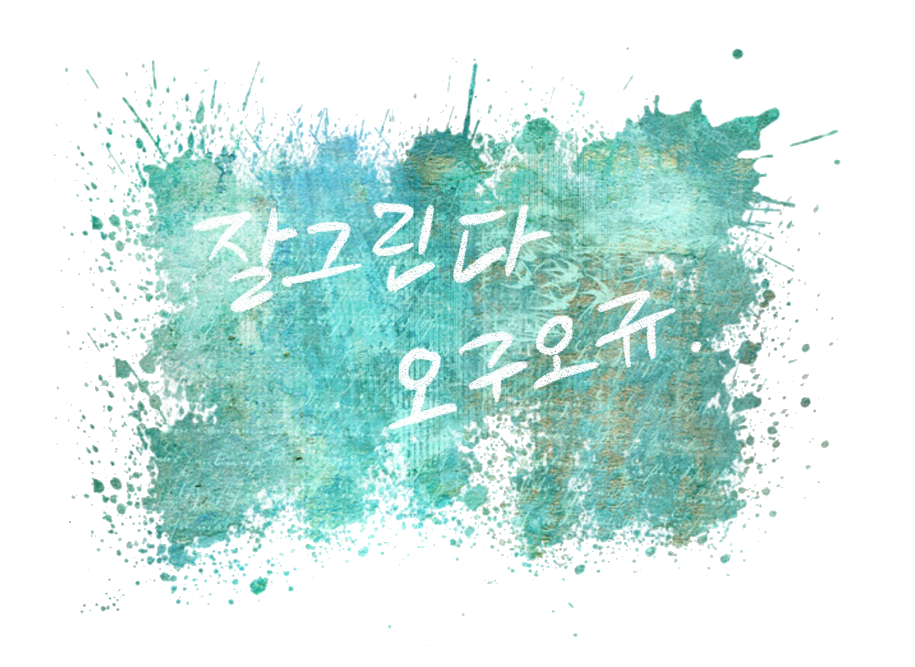 잘그린다
오구오규.